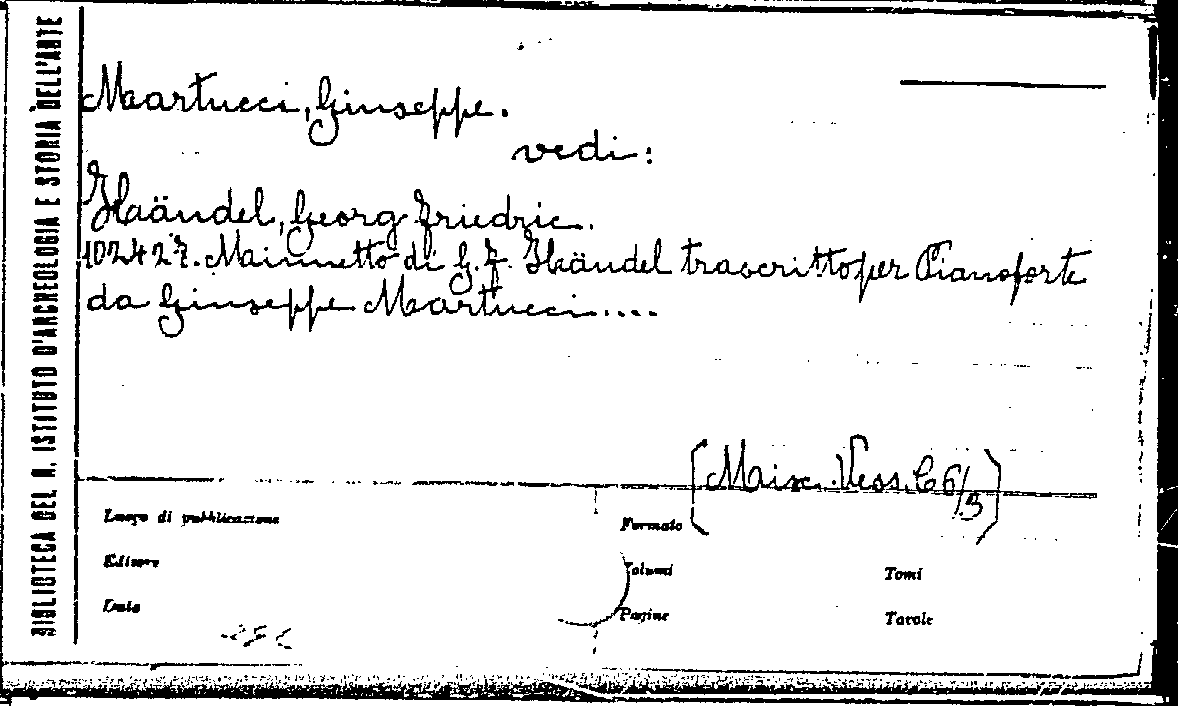 BIBLIOTECA DEL R. ISTITUTO D'ARCHEOLOGIA E STORIA DELL'ARTE
Martucci, Giuseppe.
vedi:
Haändel, Georg Friedric.
102427. Mainnetto di G. F. Haändel trascritto per Pianoforte
da Giuseppe Martucci....
[Misc. Vess. C 6/3]
Luogo di pubblicazione
Formato
Editore
Volumi
Tomi
Data
Pagine
Tavole